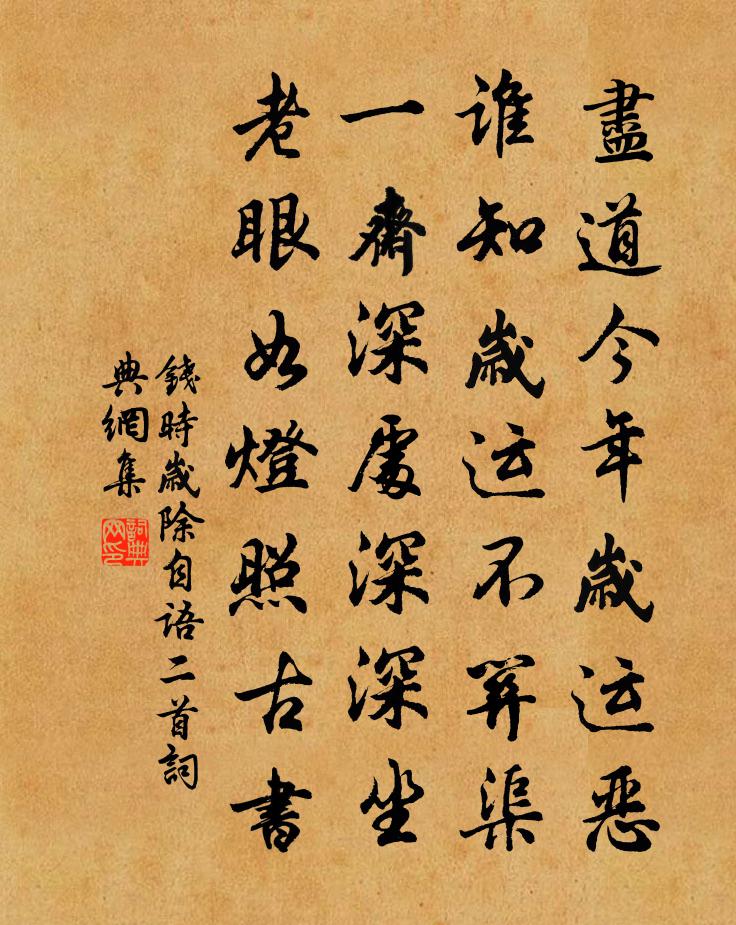 盡道今年歲运恶
谁知歲运不關渠
一齋深處深深坐
老眼如燈照古書
錢時歲除自语二首詞
典網集
詞典网印